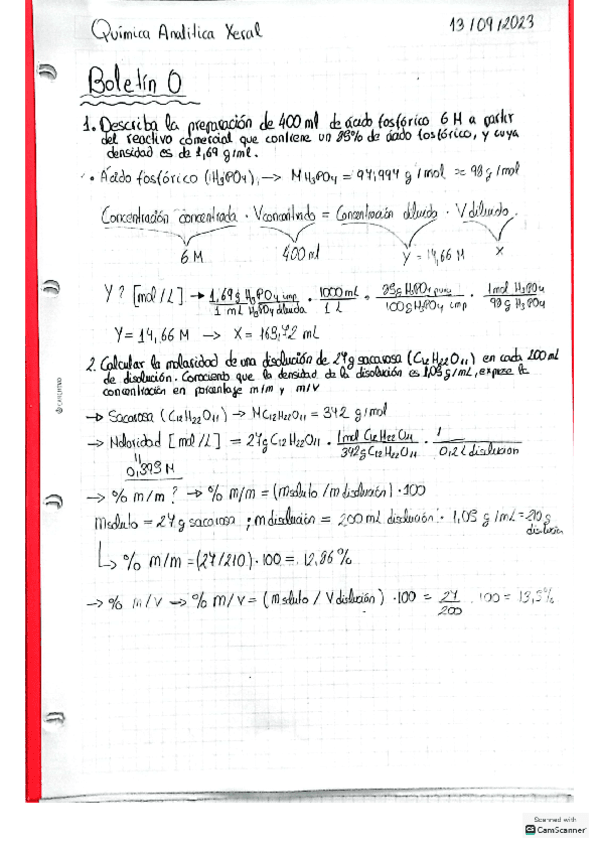 Química Analítica Xeral 13/09/2023
Boletín 0
1. Describa la preparación de 400 ml de ácido fosfórico 6 M a partir
del reactivo comercial que contiene un 85% de ácido fosfórico, y cuya
densidad es de 1,69 g/ml.
• Ácido fosfórico (H3PO4) → M H3PO4 = 97,994 g/mol ≈ 98 g/mol
Concentración concentrada · V concentrado = Concentración diluida · V diluido.
6 M 400 ml Y = 14,66 M X
Y? [mol/L] → 1,69 g H3PO4 imp / 1 mL H3PO4 diluida · 1000 mL / 1 L · 85 g H3PO4 puro / 100 g H3PO4 imp · 1 mol H3PO4 / 98 g H3PO4
Y = 14,66 M → X = 163,72 mL
2. Calcular la molaridad de una disolución de 27 g sacarosa (C12H22O11) en cada 200 ml
de disolución. Conociendo que la densidad de la disolución es 1,05 g/mL, exprese la
concentración en porcentaje m/m y m/V
→ Sacarosa (C12H22O11) → M C12H22O11 = 342 g/mol
→ Molaridad [mol/L] = 27 g C12H22O11 · 1 mol C12H22O11 / 342 g C12H22O11 · 1 / 0,2 L disolucion
0,395 M
→ % m/m? → % m/m = (m soluto / m disolución) · 100
m soluto = 27 g sacarosa ; m disolución = 200 mL disolución · 1,05 g/mL = 210 g
disolución
→ % m/m = (27/210) · 100 = 12,86 %
→ % m/V → % m/V = (m soluto / V disolución) · 100 = 27/200 · 100 = 13,5%
Scanned with
CS CamScanner